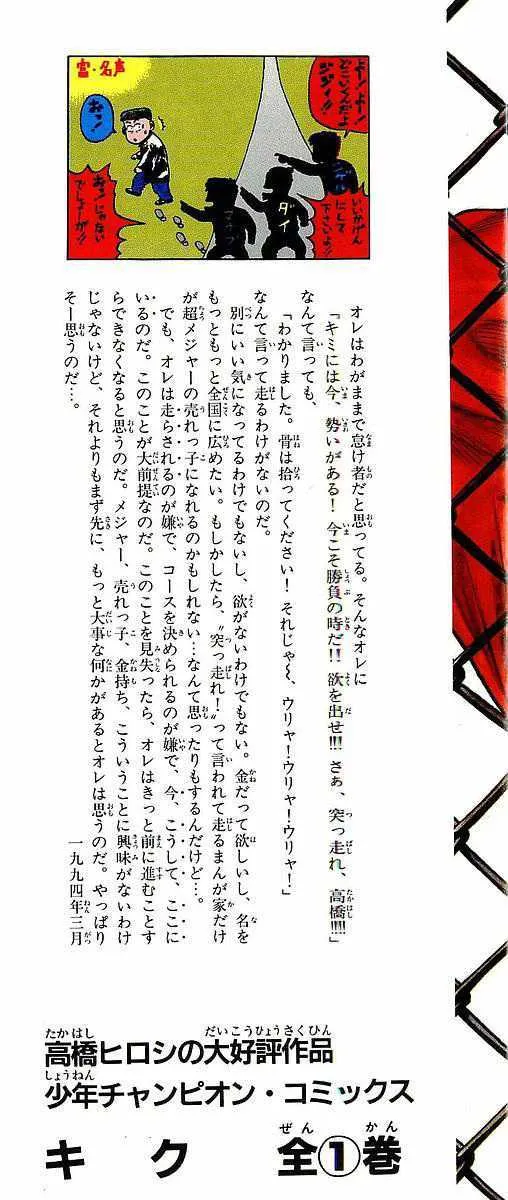 富・名声
よー!よー!
どこいくんだよ
ジジイ!!
いいかげん
にして
下さいよ!!
おっ!
おっ!じゃない
でしょーが!!
ダイ
オレはわがままで怠け者だと思ってる。そんなオレに
「キミには今、勢いがある!今こそ勝負の時だ!!欲を出せ!!!さぁ、突っ走れ、高橋!!!!」
なんて言っても、
「わかりました。骨は拾ってください!それじゃ〜、ウリャ!ウリャ!ウリャ!」
なんて言って走るわけがないのだ。
別にいい気になってるわけでもないし、欲がないわけでもない。金だって欲しいし、名を
もっともっと全国に広めたい。もしかしたら、〝突っ走れ!〟って言われて走るまんが家だけ
が超メジャーの売れっ子になれるのかもしれない…なんて思ったりもするんだけど…。
でも、オレは走らされるのが嫌で、コースを決められるのが嫌で、今、こうして、ここに
いるのだ。このことが大前提なのだ。このことを見失ったら、オレはきっと前に進むことす
らできなくなると思うのだ。メジャー、売れっ子、金持ち、こういうことに興味がないわけ
じゃないけど、それよりもまず先に、もっと大事な何かがあるとオレは思うのだ。やっぱり
そー思うのだ…。
一九九四年三月
高橋ヒロシの大好評作品
少年チャンピオン・コミックス
キク 全①巻